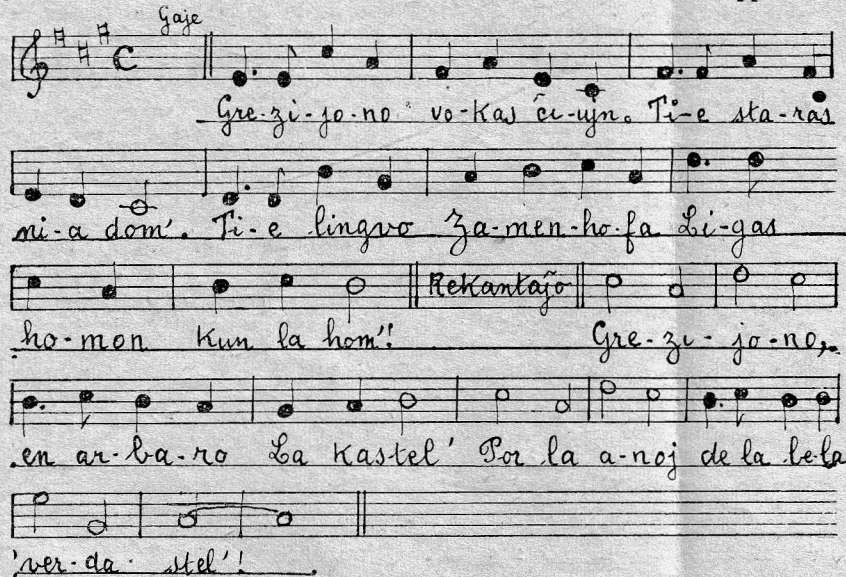 Gaje
Gre-zi-jo-no vo-kas ĉi-ujn. Ti-e sta-ras
ni-a dom'. Ti-e lingvo Za-men-ho-fa Li-gas
Rekantaĵo
ho-mon kun la hom'! Gre-zi-jo-no,
en ar-ba-ro La kas-tel' Por la a-noj de la be-la
ver-da stel'!